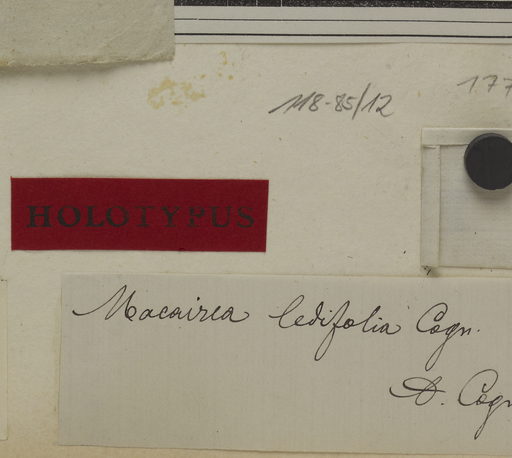 118-85/12
177
HOLOTYPUS
Macairea ledifolia Cogn.
A. Cogn